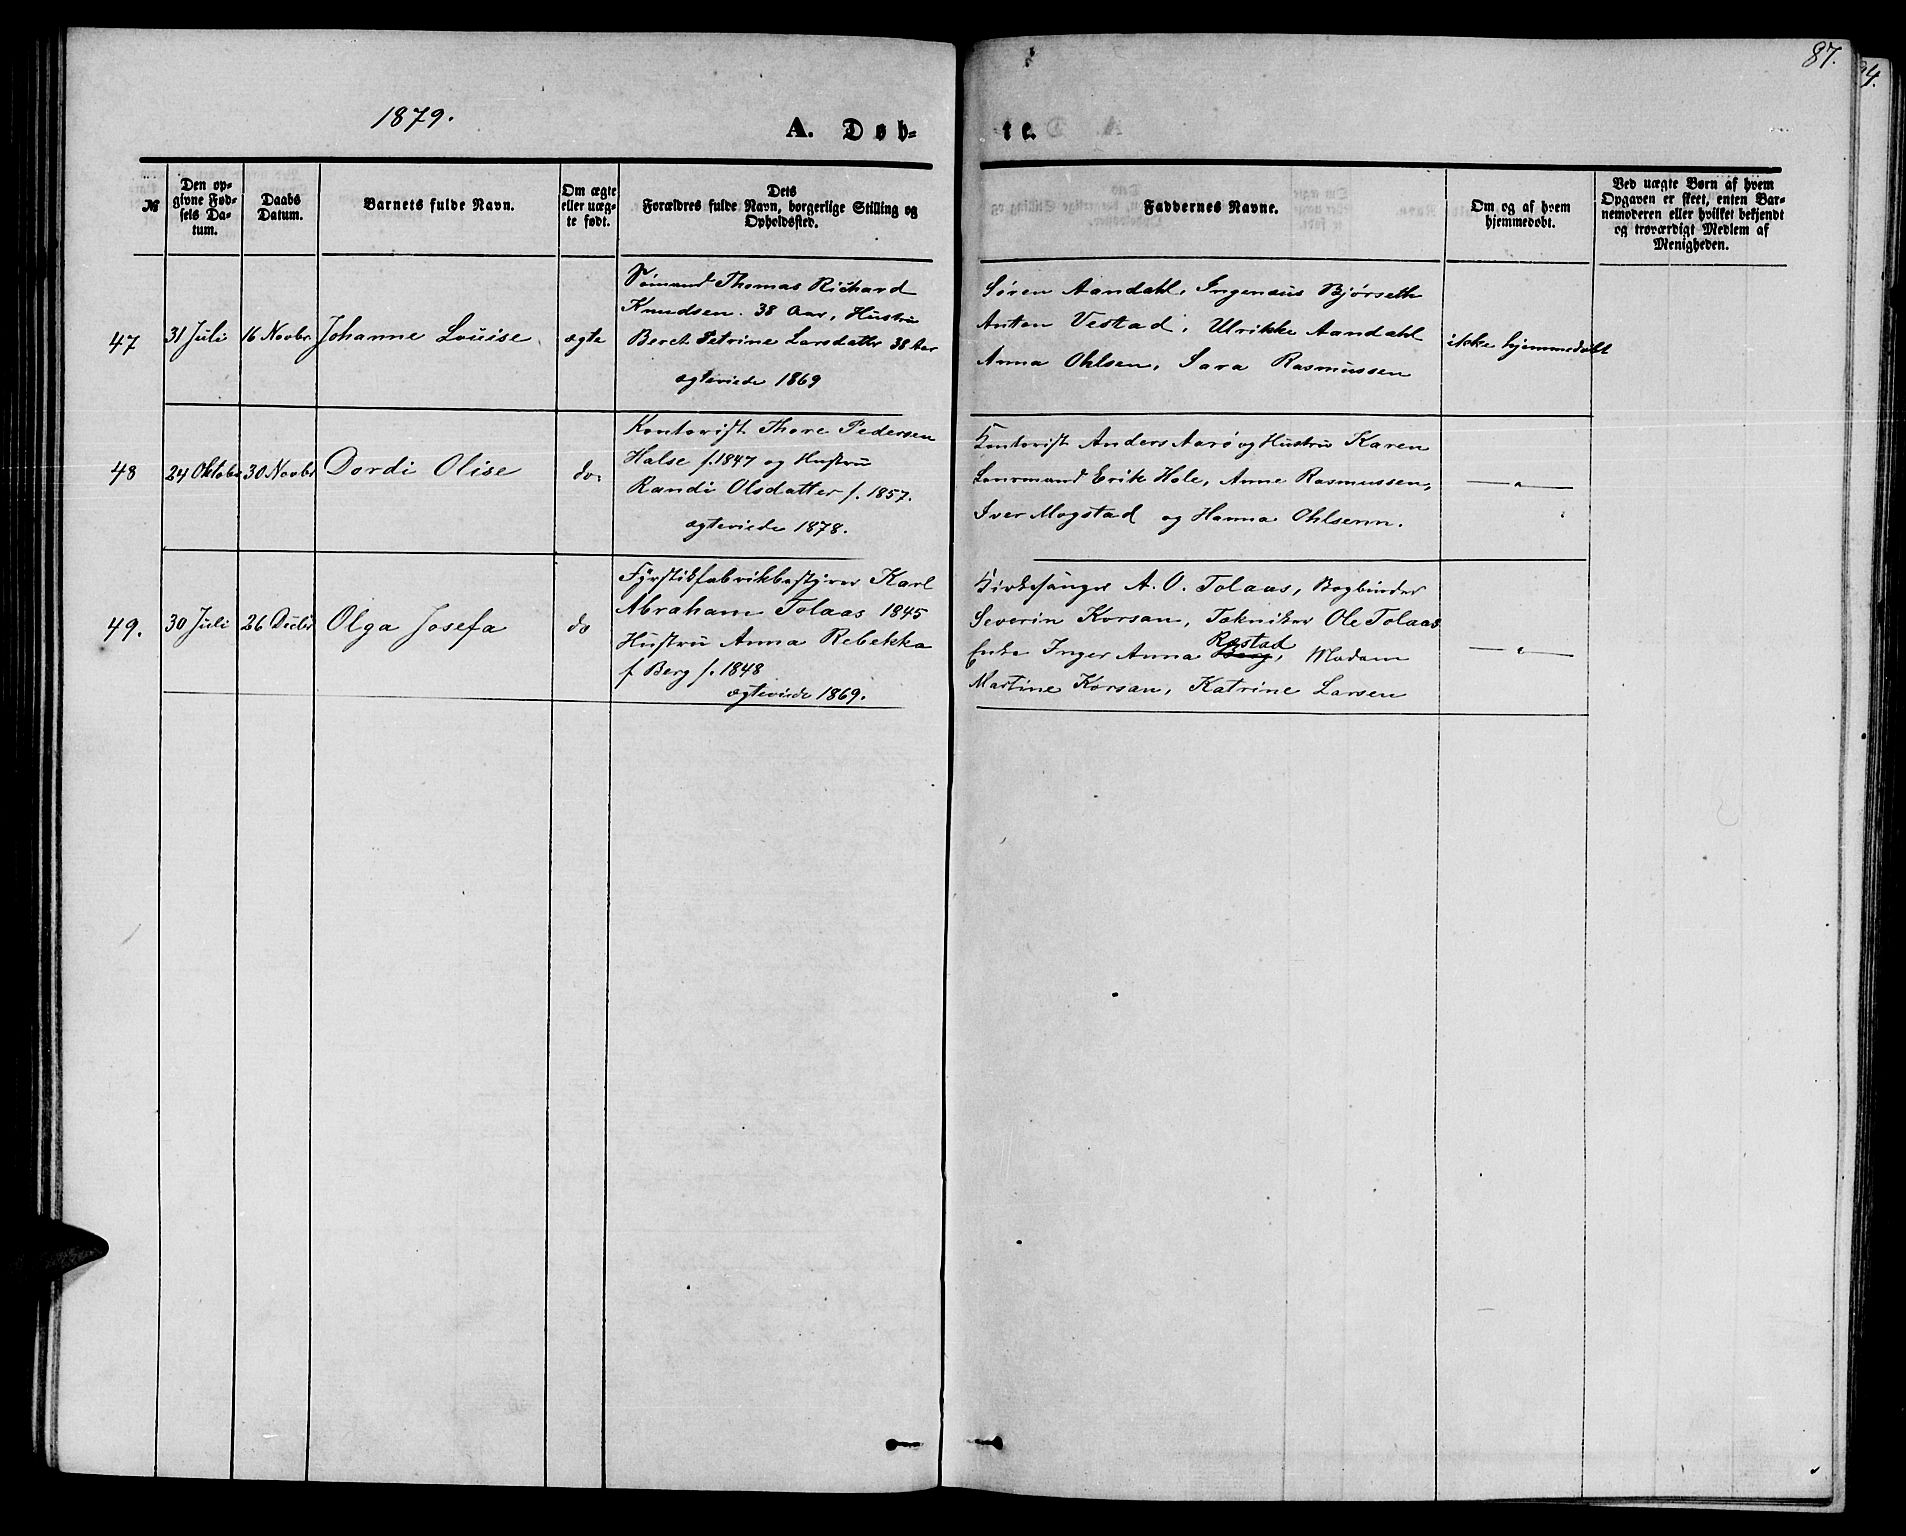 87.
1879.
A. Døb-
te.
№
Den op-
givne Fød-
sels Da-
tum.
Daabs
Datum.
Barnets fulde Navn.
Om ægte
eller uæg-
te født.
Dets
Forældres fulde Navn, borgerlige Stilling og
Opholdssted.
Faddernes Navne.
Om og af hvem
hjemmedøbt.
Ved uægte Børn af hvem
Opgaven er skeet, enten Bar-
nemoderen eller hvilket bekjendt
og troværdigt Medlem af
Menigheden.
47
31 Juli
16 Novbr
Johanne Louise
ægte
Sømand Thomas Richard
Knudsen. 38 Aar, Hustru
Beret Petrine Larsdatter 38 Aar
ægteviede 1869
Søren Aandahl, Ingenius Bjørseth
Anton Vestad, Ulrikke Aandahl
Anna Ohlsen, Sara Rasmussen
ikke hjemmedøbt
48
24 Oktober
30 Novbr
Dordi Olise
do:
Kontorist Thore Pedersen
Halse f. 1847 og Hustru
Randi Olsdatter f. 1857.
ægteviede 1878.
Kontorist Anders Aarø og Hustru Karen
Erik Hole, Anne Rasmussen,
Iver Mogstad og Hanna Ohlsenn.
— " —
49.
30 Juli
26 Decbr
Olga Josefa
do
Fyrstikfabrikbestyrer Karl
Abraham Tolaas 1845
Hustru Anna Rebekka
f Berg f. 1848
ægteviede 1869.
Kirkesanger A. O. Tolaas, Bogbinder
Severin Korsan, Tekniker Ole Tolaas
Enke Inger Anna Berg Røstad, Madam
Martine Korsan, Katrine Larsen
— " —